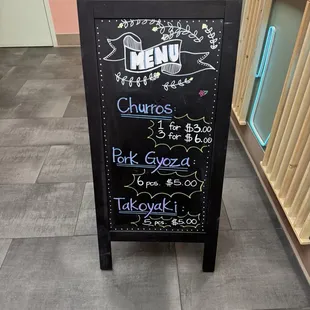 MENU
Churros:
1 for $3.00
3 for $6.00
Pork Gyoza:
6 pcs. $5.00
Takoyaki:
5 pcs. $5.00